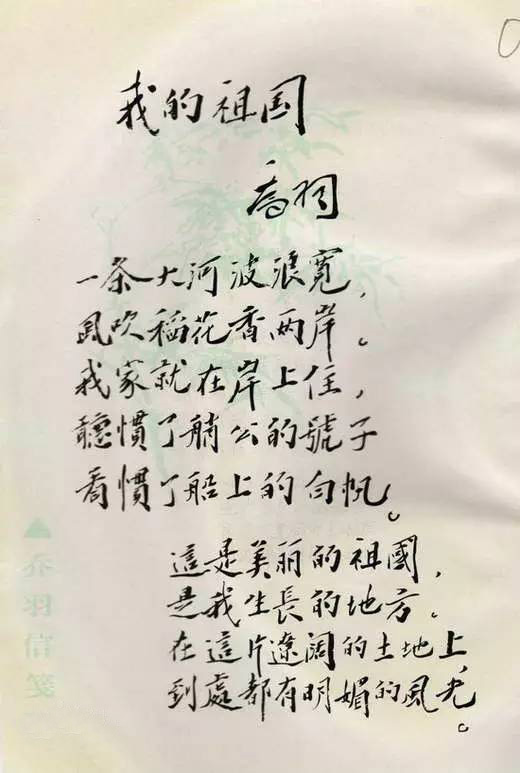 我的祖国
喬羽
一条大河波浪寬，
風吹稻花香两岸。
我家就在岸上住，
聽慣了艄公的號子
看慣了船上的白帆。
這是美丽的祖國，
是我生長的地方.
在這片遼阔的土地上，
到處都有明媚的風光。
▲乔羽信笺